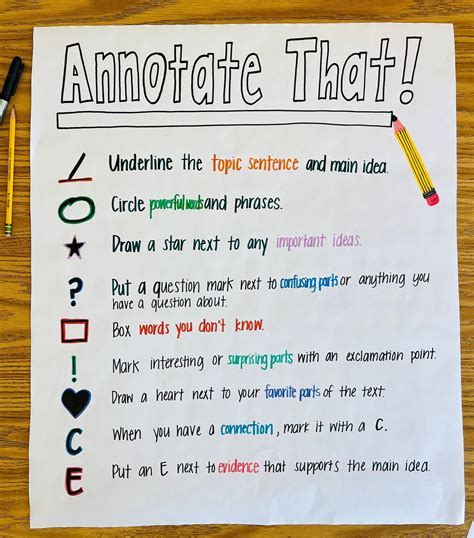 Annotate That!
Underline the topic sentence and main idea.
Circle powerful words and phrases.
Draw a star next to any important ideas.
? Put a question mark next to confusing parts or anything you
have a question about.
Box words you don't know.
! Mark interesting or surprising parts with an exclamation point.
Draw a heart next to your favorite parts of the text.
C When you have a connection, mark it with a C.
E Put an E next to evidence that supports the main idea.